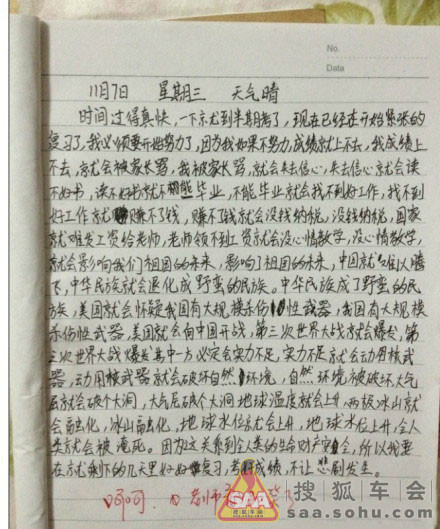 No.
Data
11月7日 星期三 天气晴
时间过得真快，一下就到半期考了，现在已经在开始紧张的
复习了，我必须要开始努力了，因为我如果不努力，成绩就上不去，我成绩上
不去，就会被家长骂，我被家长骂，就会失去信心，失去信心就会读
不好书，读不好书就不能毕业，不能毕业就会找不到好工作，找不到
好工作就赚不了钱，赚不了钱就会没钱纳税，没钱纳税，国家
就难发工资给老师，老师领不到工资就会没心情教学，没心情教学，
就会影响我们祖国的未来，影响了祖国的未来，中国就难以腾
飞，中华民族就会退化成野蛮的民族。中华民族成了野蛮的民
族，美国就会怀疑我国有大规模杀伤性武器，我国有大规模
杀伤性武器，美国就会向中国开战，第三次世界大战就会爆发，第
三次世界大战爆发其中一方必定会实力不足，实力不足就会动用核武
器，动用核武器就会破坏自然环境，自然环境被破坏大气
层就会破个大洞，大气层破个大洞地球温度就会上升，两极冰山就
会融化，冰山融化，地球水位就会上升，地球水位上升，全人
类就会被淹死。因为这关系到全人类的生命财产安全，所以我要
在就剩下的几天里好好复习，考好成绩，不让悲剧发生。
呵呵
SAA
搜狐车会
saa.sohu.com